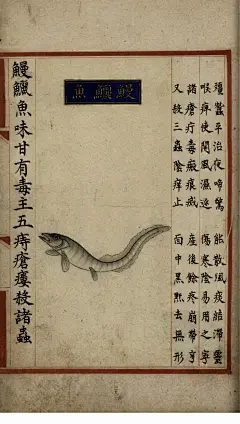 殭蠶平治夜啼驚 能散風痰結滯靈
喉痹使開風濕逐 傷寒陰易用之寧
諸瘡疔毒瘢痕滅 産後餘疼崩帶亨
又殺三蟲陰痒止 面中黑䵟去無形
鰻鱺魚
鰻鱺魚味甘有毒主五痔瘡瘻殺諸蟲